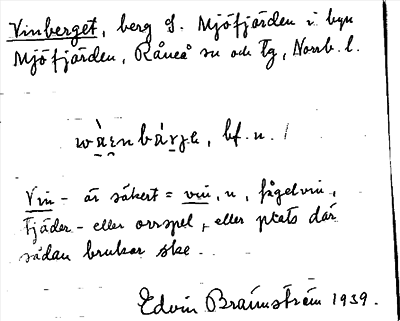 Vinberget, berg S. Mjöfjärden i byn
Mjöfjärden, Råneå sn och tg, Norrb. l.
bf. n.
Vin- är säkert = vin, n, fågelvin,
tjäder- eller orrspel, eller plats där
sådan brukar ske.
Edvin Brännström 1939.